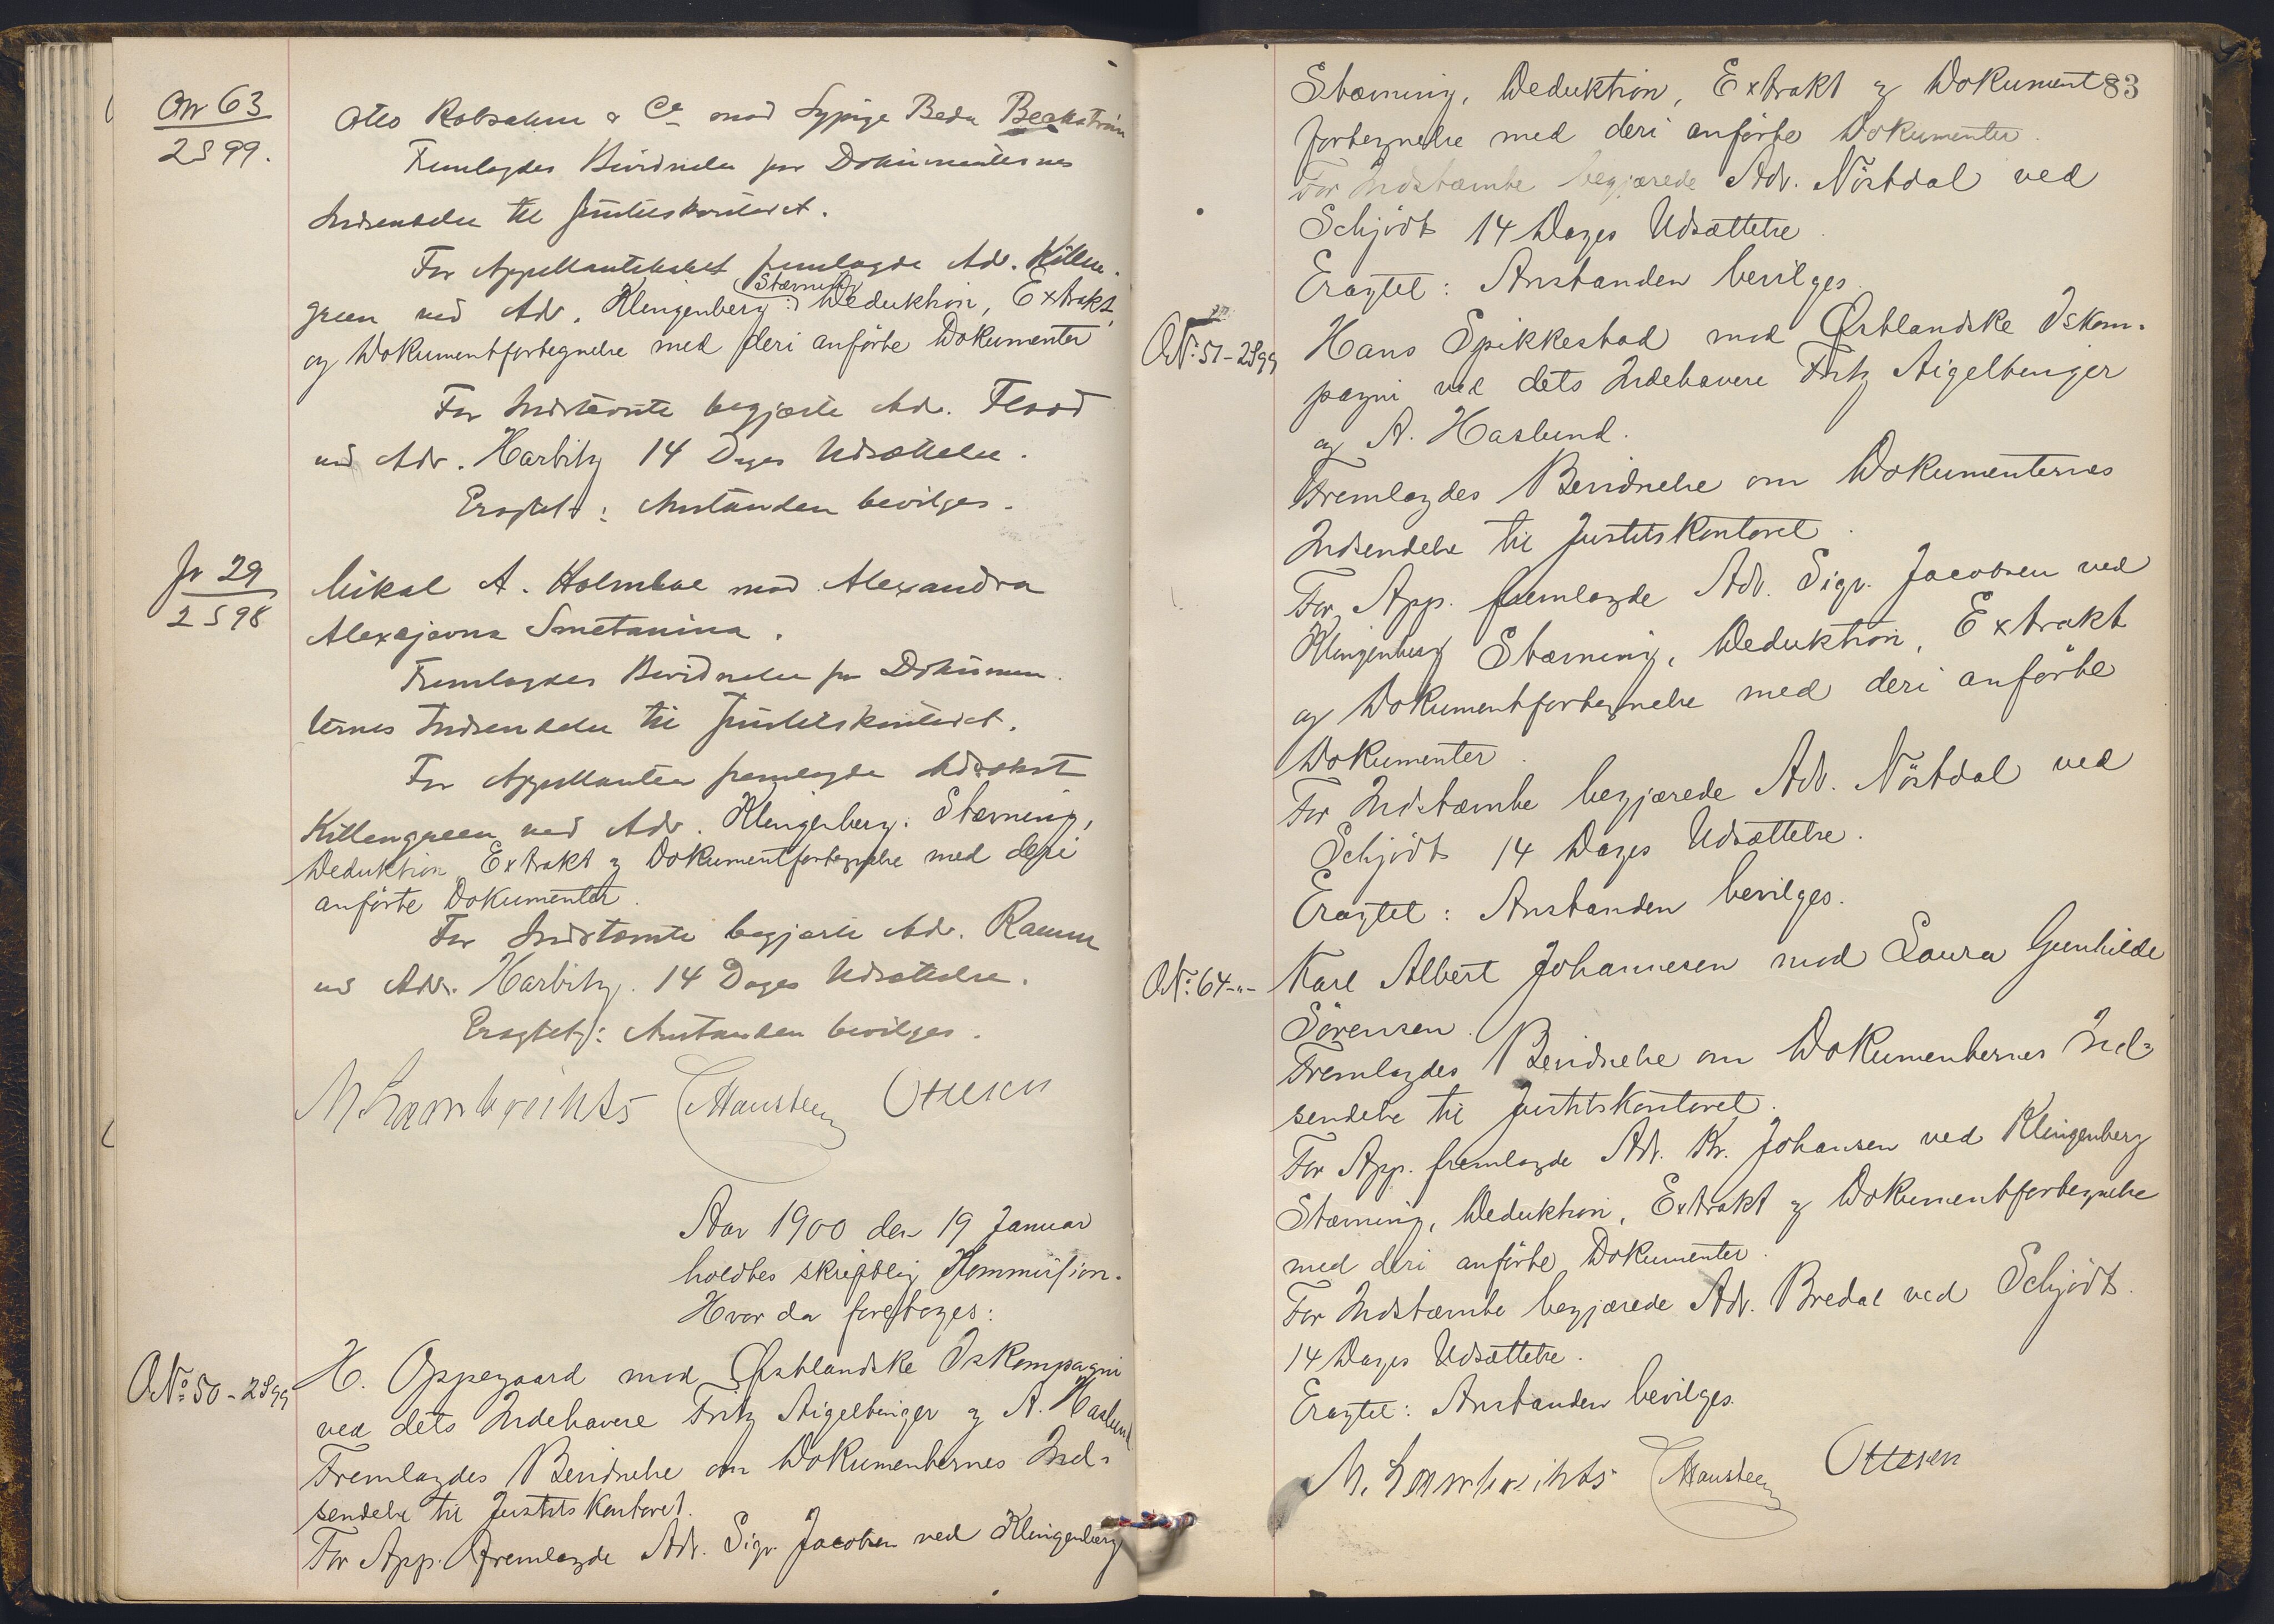 Nr 63
2 S 99.
Otto Robsahm & Co mod Sypige Beda Beckström
Fremlagdes Bevidnelse for Dokumenternes
Indsendelse til Justitskontoret.
For Appellantskabet fremlagde Adv. Killen-
green ved Adv. Klingenberg: Stævning, Deduktion, Extrakt
og Dokumentfortegnelse med deri anførte Dokumenter
For Indstævnte begjærte Adv. Flood
ved Adv. Harbitz 14 Dages Udsættelse.
Eragtet: Anstanden bevilges.
Nr 29
2 S 98
Mikal A. Holmboe mod Alexandra
Alexejevna Smetanina.
Fremlagdes Bevidnelse for Dokumen-
ternes Indsendelse til Justitskontoret.
For Appellanten fremlagde Advokat
Killengreen ved Adv. Klingenberg: Stævning,
Deduktion, Extrakt & Dokumentfortegnelse med deri
anførte Dokumenter.
For Indstævnte begjærte Adv. Ramm
ved Adv. Harbitz 14 Dages Udsættelse.
Eragtet: Anstanden bevilges.
M Lambrechts Hansteen Ottesen
Aar 1900 den 19 Januar
holdtes skriftlig Kommission.
Hvor da foretoges:
No 50 - 2 S 99
H. Oppegaard mod Østlandske Iskompagni
ved dets Indehavere Fritz Aigeltinger & A. Haslund
Fremlagdes Bevidnelse om Dokumenternes Ind-
sendelse til Justitskontoret.
For App. fremlagde Adv. Sigv. Jacobsen ved Klingenberg
83
Stævning, Deduktion, Extrakt & Dokument
fortegnelse med deri anførte Dokumenter.
For Indstævnte begjærede Adv. Nöstdal ved
Schjödt 14 Dages Udsættelse.
Eragtet: Anstanden bevilges.
No 51 - 2 S 99
Hans Spikkestad mod Østlandske Iskom-
pagni ved dets Indehavere Fritz Aigeltinger
og A. Haslund.
Fremlagdes Bevidnelse om Dokumenternes
Indsendelse til Justitskontoret.
For App. fremlagde Adv. Sigv. Jacobsen ved
Klingenberg Stævning, Deduktion, Extrakt
og Dokumentfortegnelse med deri anførte
Dokumenter.
For Indstævnte begjærede Adv. Nöstdal ved
Schjödt 14 Dages Udsættelse.
Eragtet: Anstanden bevilges.
No 64 - " -
Karl Albert Johannesen mod Laura Gunhilde
Sörensen.
Fremlagdes Bevidnelse om Dokumenternes Ind-
sendelse til Justitskontoret.
For App. fremlagde Adv. Kr. Johansen ved Klingenberg
Stævning, Deduktion, Extrakt & Dokumentfortegnelse
med deri anførte Dokumenter.
For Indstævnte begjærede Adv. Bredal ved Schjödt.
14 Dages Udsættelse.
Eragtet: Anstanden bevilges.
M. Lambrechts Hansteen Ottesen